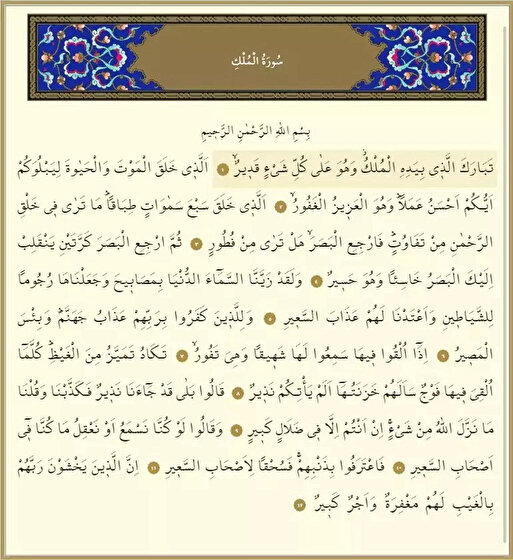 سُورَةُ الْمُلْكِ
بِسْمِ اللّٰهِ الرَّحْمٰنِ الرَّحِيمِ
تَبَارَكَ الَّذٖى بِيَدِهِ الْمُلْكُؗ وَهُوَ عَلٰى كُلِّ شَیْءٍ قَدٖيرٌۙ ﴿١﴾ اَلَّذٖى خَلَقَ الْمَوْتَ وَالْحَيٰوةَ لِيَبْلُوَكُمْ
اَيُّكُمْ اَحْسَنُ عَمَلًاؕ وَهُوَ الْعَزٖيزُ الْغَفُورُۙ ﴿٢﴾ اَلَّذٖى خَلَقَ سَبْعَ سَمٰوَاتٍ طِبَاقًاؕ مَا تَرٰى فٖى خَلْقِ
الرَّحْمٰنِ مِنْ تَفَاوُتٍؕ فَارْجِعِ الْبَصَرَۙ هَلْ تَرٰى مِنْ فُطُورٍ ﴿٣﴾ ثُمَّ ارْجِعِ الْبَصَرَ كَرَّتَيْنِ يَنْقَلِبْ
اِلَيْكَ الْبَصَرُ خَاسِئًا وَهُوَ حَسٖيرٌ ﴿٤﴾ وَلَقَدْ زَيَّنَّا السَّمَٓاءَ الدُّنْيَا بِمَصَابٖيحَ وَجَعَلْنَاهَا رُجُومًا
لِلشَّيَاطٖينِ وَاَعْتَدْنَا لَهُمْ عَذَابَ السَّعٖيرِ ﴿٥﴾ وَلِلَّذٖينَ كَفَرُوا بِرَبِّهِمْ عَذَابُ جَهَنَّمَؕ وَبِئْسَ
الْمَصٖيرُ ﴿٦﴾ اِذَٓا اُلْقُوا فٖيهَا سَمِعُوا لَهَا شَهٖيقًا وَهِىَ تَفُورُۙ ﴿٧﴾ تَكَادُ تَمَيَّزُ مِنَ الْغَيْظِؕ كُلَّمَٓا
اُلْقِىَ فٖيهَا فَوْجٌ سَاَلَهُمْ خَزَنَتُهَٓا اَلَمْ يَأْتِكُمْ نَذٖيرٌ ﴿٨﴾ قَالُوا بَلٰى قَدْ جَٓاءَنَا نَذٖيرٌ فَكَذَّبْنَا وَقُلْنَا
مَا نَزَّلَ اللّٰهُ مِنْ شَیْءٍۚ اِنْ اَنْتُمْ اِلَّا فٖى ضَلَالٍ كَبٖيرٍ ﴿٩﴾ وَقَالُوا لَوْ كُنَّا نَسْمَعُ اَوْ نَعْقِلُ مَا كُنَّا فٖٓى
اَصْحَابِ السَّعٖيرِ ﴿١٠﴾ فَاعْتَرَفُوا بِذَنْبِهِمْۚ فَسُحْقًا لِاَصْحَابِ السَّعٖيرِ ﴿١١﴾ اِنَّ الَّذٖينَ يَخْشَوْنَ رَبَّهُمْ
بِالْغَيْبِ لَهُمْ مَغْفِرَةٌ وَاَجْرٌ كَبٖيرٌ ﴿١٢﴾